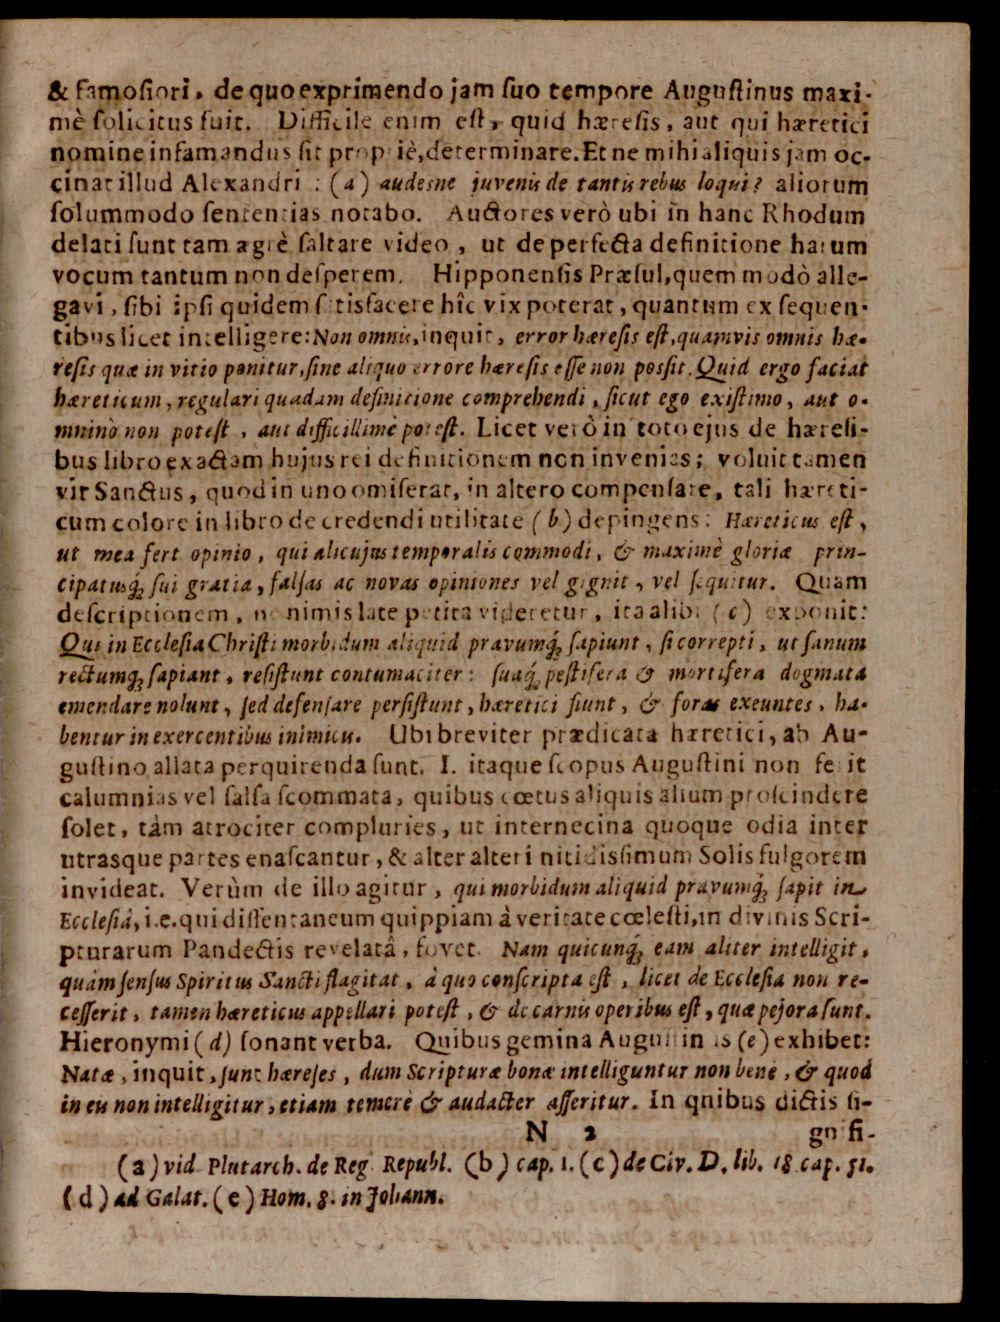 & famoſiori, de quo exprimendo jam ſuo tempore Auguſtinus maxi-
mè ſolicitus fuit. Difficile enim eſt, quid hæreſis, aut qui hæretici
nomine infamandus ſit propriè, determinare. Et ne mihi aliquis jam oc-
cinat illud Alexandri : (a) audesne juvenis de tantis rebus loqui? aliorum
ſolummodo ſententias notabo. Auctores verò ubi in hanc Rhodum
delati ſunt tam ægrè ſaltare video, ut de perfecta definitione harum
vocum tantum non deſperem. Hipponenſis Præſul, quem modò alle-
gavi, ſibi ipſi quidem ſatisfacere hîc vix poterat, quantum ex ſequen-
tibus licet intelligere: Non omnis, inquit, error hæreſis eſt, quamvis omnis hæ-
reſis quæ in vitio ponitur, ſine aliquo errore hæreſis eſſe non poſſit. Quid ergo faciat
hæreticum, regulari quadam definitione comprehendi, ſicut ego exiſtimo, aut o-
mnino non poteſt, aut difficillimè poteſt. Licet verò in toto ejus de hæreſi-
bus libro exactam hujus rei definitionem non invenies; voluit tamen
vir Sanctus, quod in uno omiſerat, in altero compenſare, tali hæreti-
cum colore in libro de credendi utilitate (b) depingens: Hæreticus eſt,
ut mea fert opinio, qui alicujus temporalis commodi, & maximè gloriæ prin-
cipatusq́; ſui gratia, falſas ac novas opiniones vel gignit, vel ſequitur. Quam
deſcriptionem, ne nimis late petita videretur, ita alibi (c) exponit:
Qui in Eccleſia Chriſti morbidum aliquid pravumq́; ſapiunt, ſi correpti, ut ſanum
rectumq́; ſapiant, reſiſtunt contumaciter: ſuaq́; peſtifera & mortifera dogmata
emendare nolunt, ſed defenſare perſiſtunt, hæretici fiunt, & foras exeuntes, ha-
bentur in exercentibus inimicis. Ubi breviter prædicata hæretici, ab Au-
guſtino allata perquirenda ſunt. I. itaque ſcopus Auguſtini non fe it
calumnias vel falſa ſcommata, quibus cœtus aliquis alium proſcindere
ſolet, tàm atrociter compluries, ut internecina quoque odia inter
utrasque partes enaſcantur, & alter alteri nitidisſimum Solis fulgorem
invideat. Verùm de illo agitur, qui morbidum aliquid pravumq́; ſapit in
Eccleſiâ, i.e. qui diſſentaneum quippiam à veritate cœleſti, in divinis Scri-
pturarum Pandectis revelatâ, fovet. Nam quicunq́; eam aliter intelligit,
quàm ſenſus Spiritus Sancti flagitat, à quo conſcripta eſt, licet de Eccleſia non re-
ceſſerit, tamen hæreticus appellari poteſt, & de carnis operibus eſt, quæ pejora ſunt.
Hieronymi (d) ſonant verba. Quibus gemina Auguſtinus (e) exhibet:
Natæ, inquit, ſunt hæreſes, dum Scripturæ bonæ intelliguntur non benè, & quod
in eu non intelligitur, etiam temerè & audacter aſſeritur. In quibus dictis ſi-
N 2 gnifi-
(a) vid. Plutarch. de Reg. Republ. (b) cap. 1. (c) de Civ. D. lib. 18 cap. 51.
(d) ad Galat. (e) Hom. 8. in Johann.